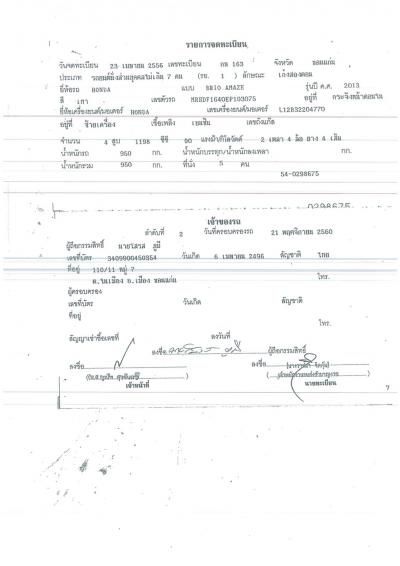 รายการจดทะเบียน
วันจดทะเบียน 23 เมษายน 2556 เลขทะเบียน กธ 163 จังหวัด ขอนแก่น
ประเภท รถยนต์นั่งส่วนบุคคลไม่เกิน 7 คน (รย. 1) ลักษณะ เก๋งสองตอน
ยี่ห้อรถ HONDA แบบ BRIO AMAZE รุ่นปี ค.ศ. 2013
สี เทา เลขตัวรถ MRHDF1640EP103075 อยู่ที่
ยี่ห้อเครื่องยนต์/มอเตอร์ HONDA เลขเครื่องยนต์/มอเตอร์ L12B32204770
อยู่ที่ ซ้ายเครื่อง เชื้อเพลิง เบนซิน เลขถังแก๊ส
จำนวน 4 สูบ 1198 ซีซี 90 แรงม้า/กิโลวัตต์ 2 เพลา 4 ล้อ ยาง 4 เส้น
น้ำหนักรถ 950 กก. น้ำหนักบรรทุก/น้ำหนักลงเพลา กก.
น้ำหนักรวม 950 กก. ที่นั่ง 5 คน
54-0298675
0298675
เจ้าของรถ
ลำดับที่ 2 วันที่ครอบครองรถ 21 พฤศจิกายน 2560
ผู้ถือกรรมสิทธิ์ นายโสรส ภูมี
เลขที่บัตร 3409900450354 วันเกิด 6 เมษายน 2496 สัญชาติ ไทย
ที่อยู่ 110/11 หมู่ 7
ต.ในเมือง อ.เมือง ขอนแก่น โทร.
ผู้ครอบครอง
เลขที่บัตร วันเกิด สัญชาติ
ที่อยู่
โทร.
สัญญาเช่าซื้อเลขที่ ลงวันที่
ลงชื่อ ผู้ถือกรรมสิทธิ์
ลงชื่อ ลงชื่อ
เจ้าหน้าที่ นายทะเบียน
7